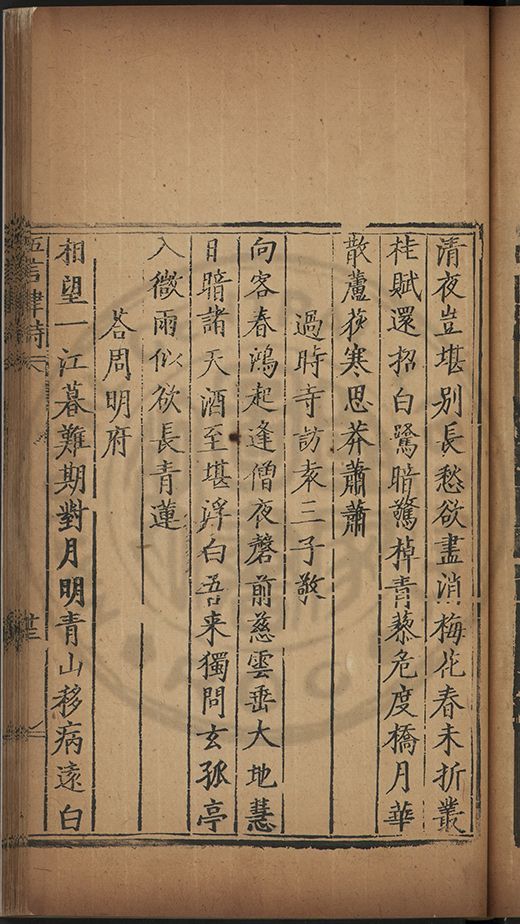 清夜豈堪別長愁欲盡消梅花春未折叢
桂賦還招白鷺暗驚棹青藜危度橋月華
散蘆荻寒思莽蕭蕭
過時寺訪袁三子敬
向客春鴻起逢僧夜磬前慈雲垂大地慧
日暗諸天酒至堪浮白吾来獨問玄孤亭
入微雨似欲長青蓮
荅周明府
相望一江暮難期對月明青山移病遠白
五言律詩